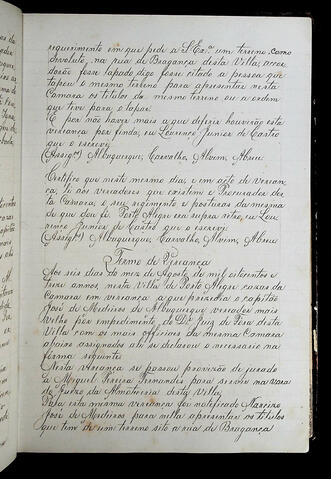 requerimento em que pede a S Exª. um terreno como
devoluto, na rua de Bragança desta Villa, accor
darão fosse tapado digo fosse citado a pessoa que
tapou o mesmo terreno para apresentar nesta
Camara os titulos do mesmo terreno ou a ordem
que teve para o tapar.
E por não haver mais a que deferir houverão esta
veriança por finda, eu Lourenço Junior de Castro
que o escrevi
(Assigos) Albuquerque, Carvalho, Alvim, Abreu
Certifico que neste mesmo dia, e em acto de verian
ça, li aos vereadores que existem e Procurador des
ta Camara, o seu regimento e posturas da mesma
de que dou fé. Porto Alegre era supra retro, eu Lou
renço Junior de Castro que o escrevi
(Assigos) Albuquerque, Carvalho, Alvim, Abreu
Termo de Veriança
Aos seis dias do mez de Agosto de mil oitocentos e
treze annos nesta Villa de Porto Alegre cazas da
Camara em veriança a que prezidio o capitão
José de Medeiros de Albuquerque vereador mais
velho por impedimento do Dor. Juiz de Fora desta
Villa com os mais officiaes da mesma Camara
abaixo assignados ahi se declarou o necessario na
forma seguinte
Nesta veriança se passou provizão de jurado
a Miguel Pereira Fernandes para servir na vara
do Juizo da Almotaceria desta Villa
Para esta mesma veriança foi notificado
José de Medeiros para nella apresentar os titulos
que tem de um terreno sito a rua de Bragança